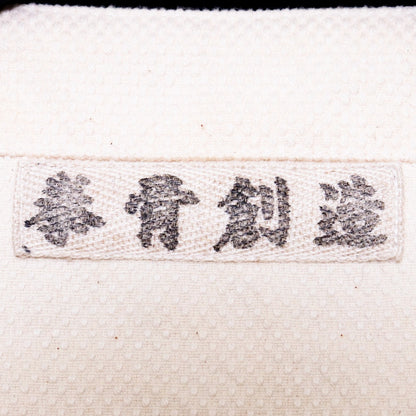 拳骨創造